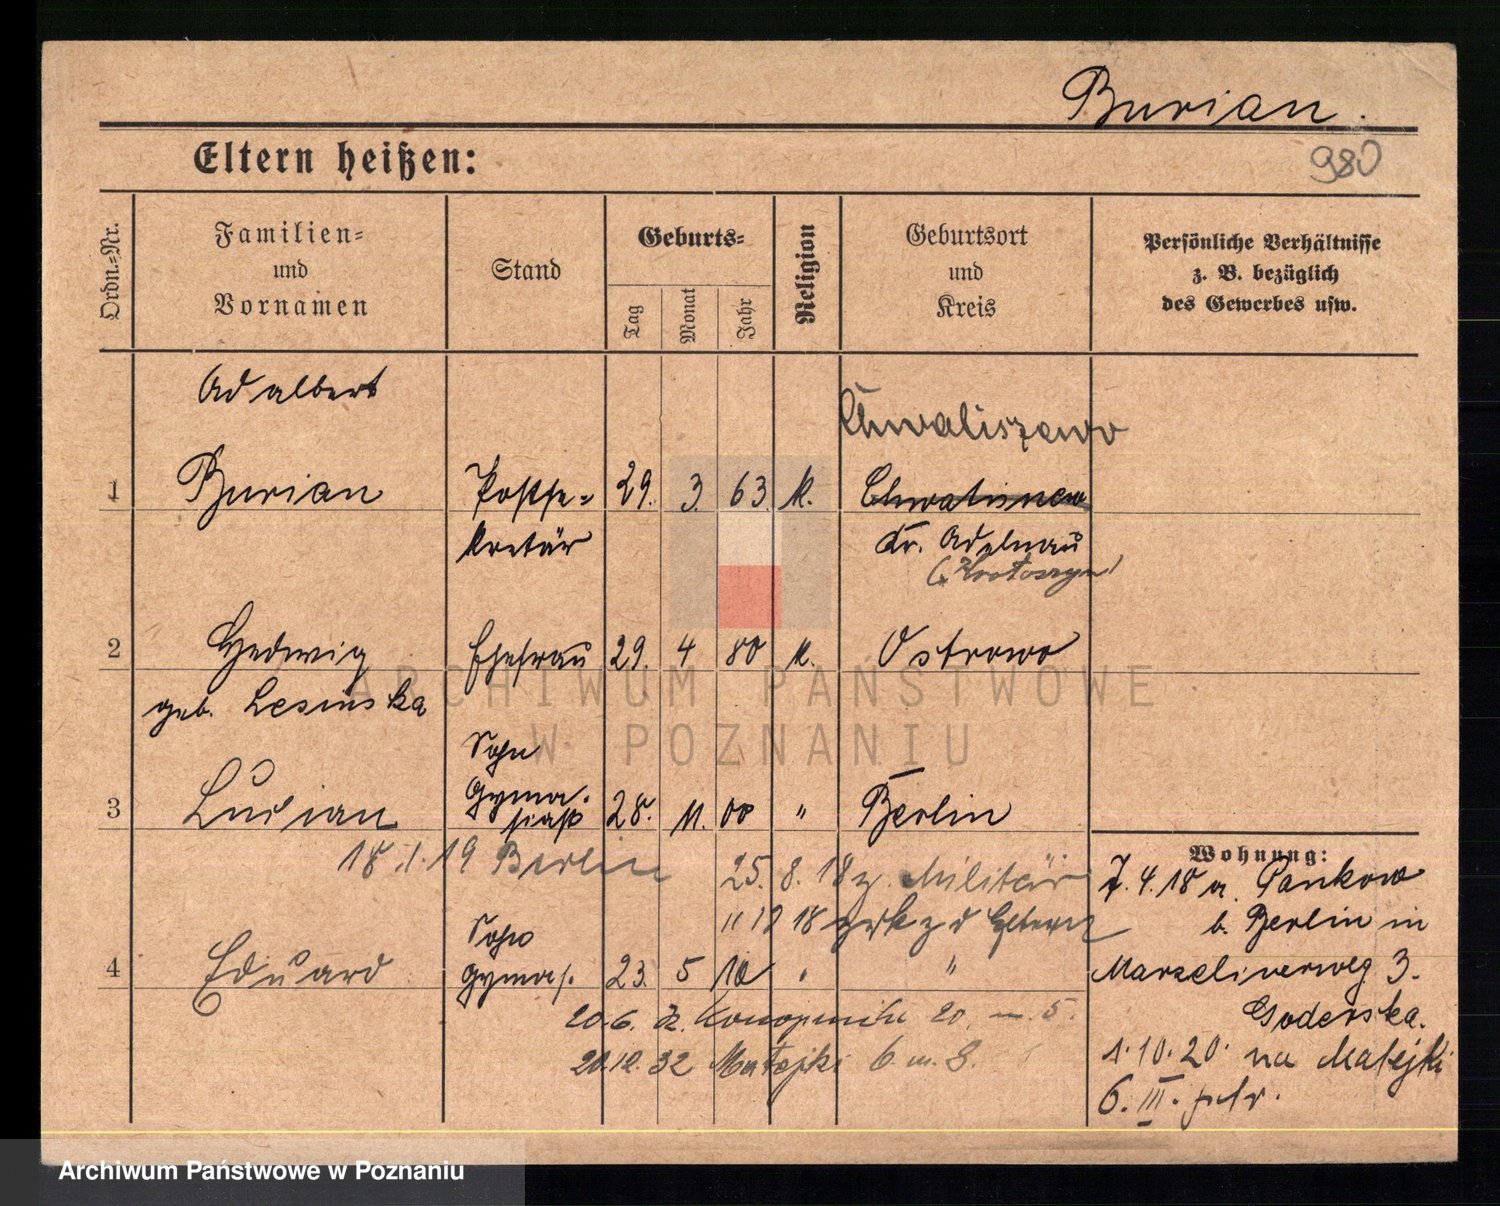 Burian.
980
Eltern heißen:
Ordn.=Nr.
Familien=
und
Vornamen
Stand
Geburts=
Tag
Monat
Jahr
Religion
Geburtsort
und
Kreis
Persönliche Verhältnisse
z. B. bezüglich
des Gewerbes usw.
Adalbert
Chwaliszewo
1 Burian Postse= 29. 3. 63. k.
kretär Kr. Adelnau
(Krotoszyn)
2 Hedwig Ehefrau 29. 4 80 k. Ostrowo
geb. Lesinska
Sohn
Gymna.
3 Lucian siast 28. 11. 00 " Berlin
18 1. 19 Berlin
25. 8. 18 z. Militär
11 12 18 zrk z d Eltern
Sohn
4 Eduard Gymnas. 23. 5 10 " "
20.6. Konopnicki 20 m. 5.
20.12.32 Matejki 6 m. 8.
Wohnung:
7. 4. 18 a. Pankow
b. Berlin in
Marzelinerweg 3.
Goderska.
1. 10. 20. na Matejki
6. III. ptr.
ARCHIWUM PAŃSTWOWE
W POZNANIU
Archiwum Państwowe w Poznaniu